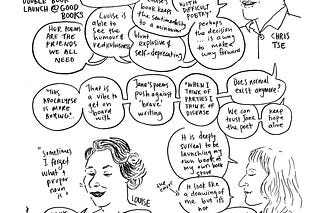 DOUBLE BOOK
LAUNCH @ GOOD
BOOKS
HER POEMS
ARE THE
FRIENDS WE
ALL NEED
LOUISE IS
able to
see the
humour &
ridiculousness
book keeps
the sentimentality
to a minimum
blunt
explosive &
self-deprecating
WITH
DIFFICULT
POETRY"
perhaps
the decision
... is a way
to make a
way forward
CHRIS
TSE
"This
APOCALYPSE
IS MORE
BORING".
That is
a vibe to
get on
board with
Jane's poems
push against
'brave'
writing
"WHEN I
THINK OF
PARTIES I
THINK OF
DISEASE
Does normal
exist anymore?
We can
trust Jane
the poet
keep
hope
alive
"Sometimes
I forget
what a
proper
noun is"
LOUISE
It is deeply
surreal to be
launching my
own book at
my own book
store
It looks like
a drawing of
me but it's
not